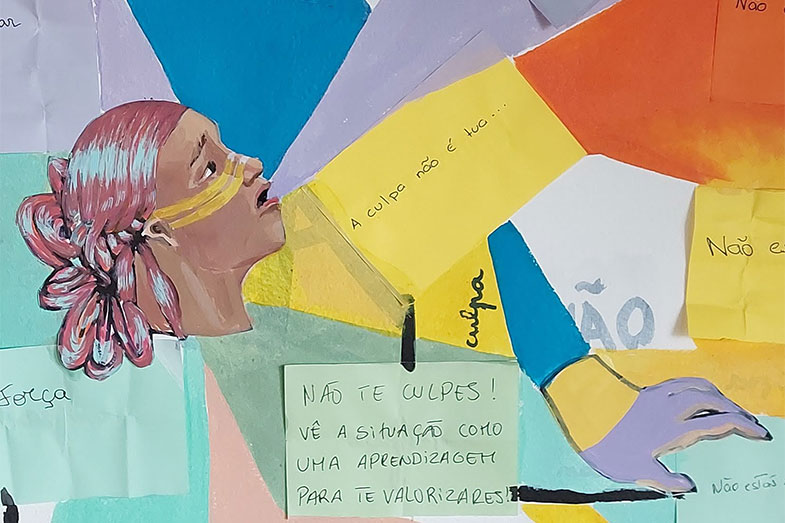 ar
Não
A culpa não é tua...
Não es
culpa
NÃO
Força
NÃO TE CULPES!
VÊ A SITUAÇÃO COMO
UMA APRENDIZAGEM
PARA TE VALORIZARES!
Não estás